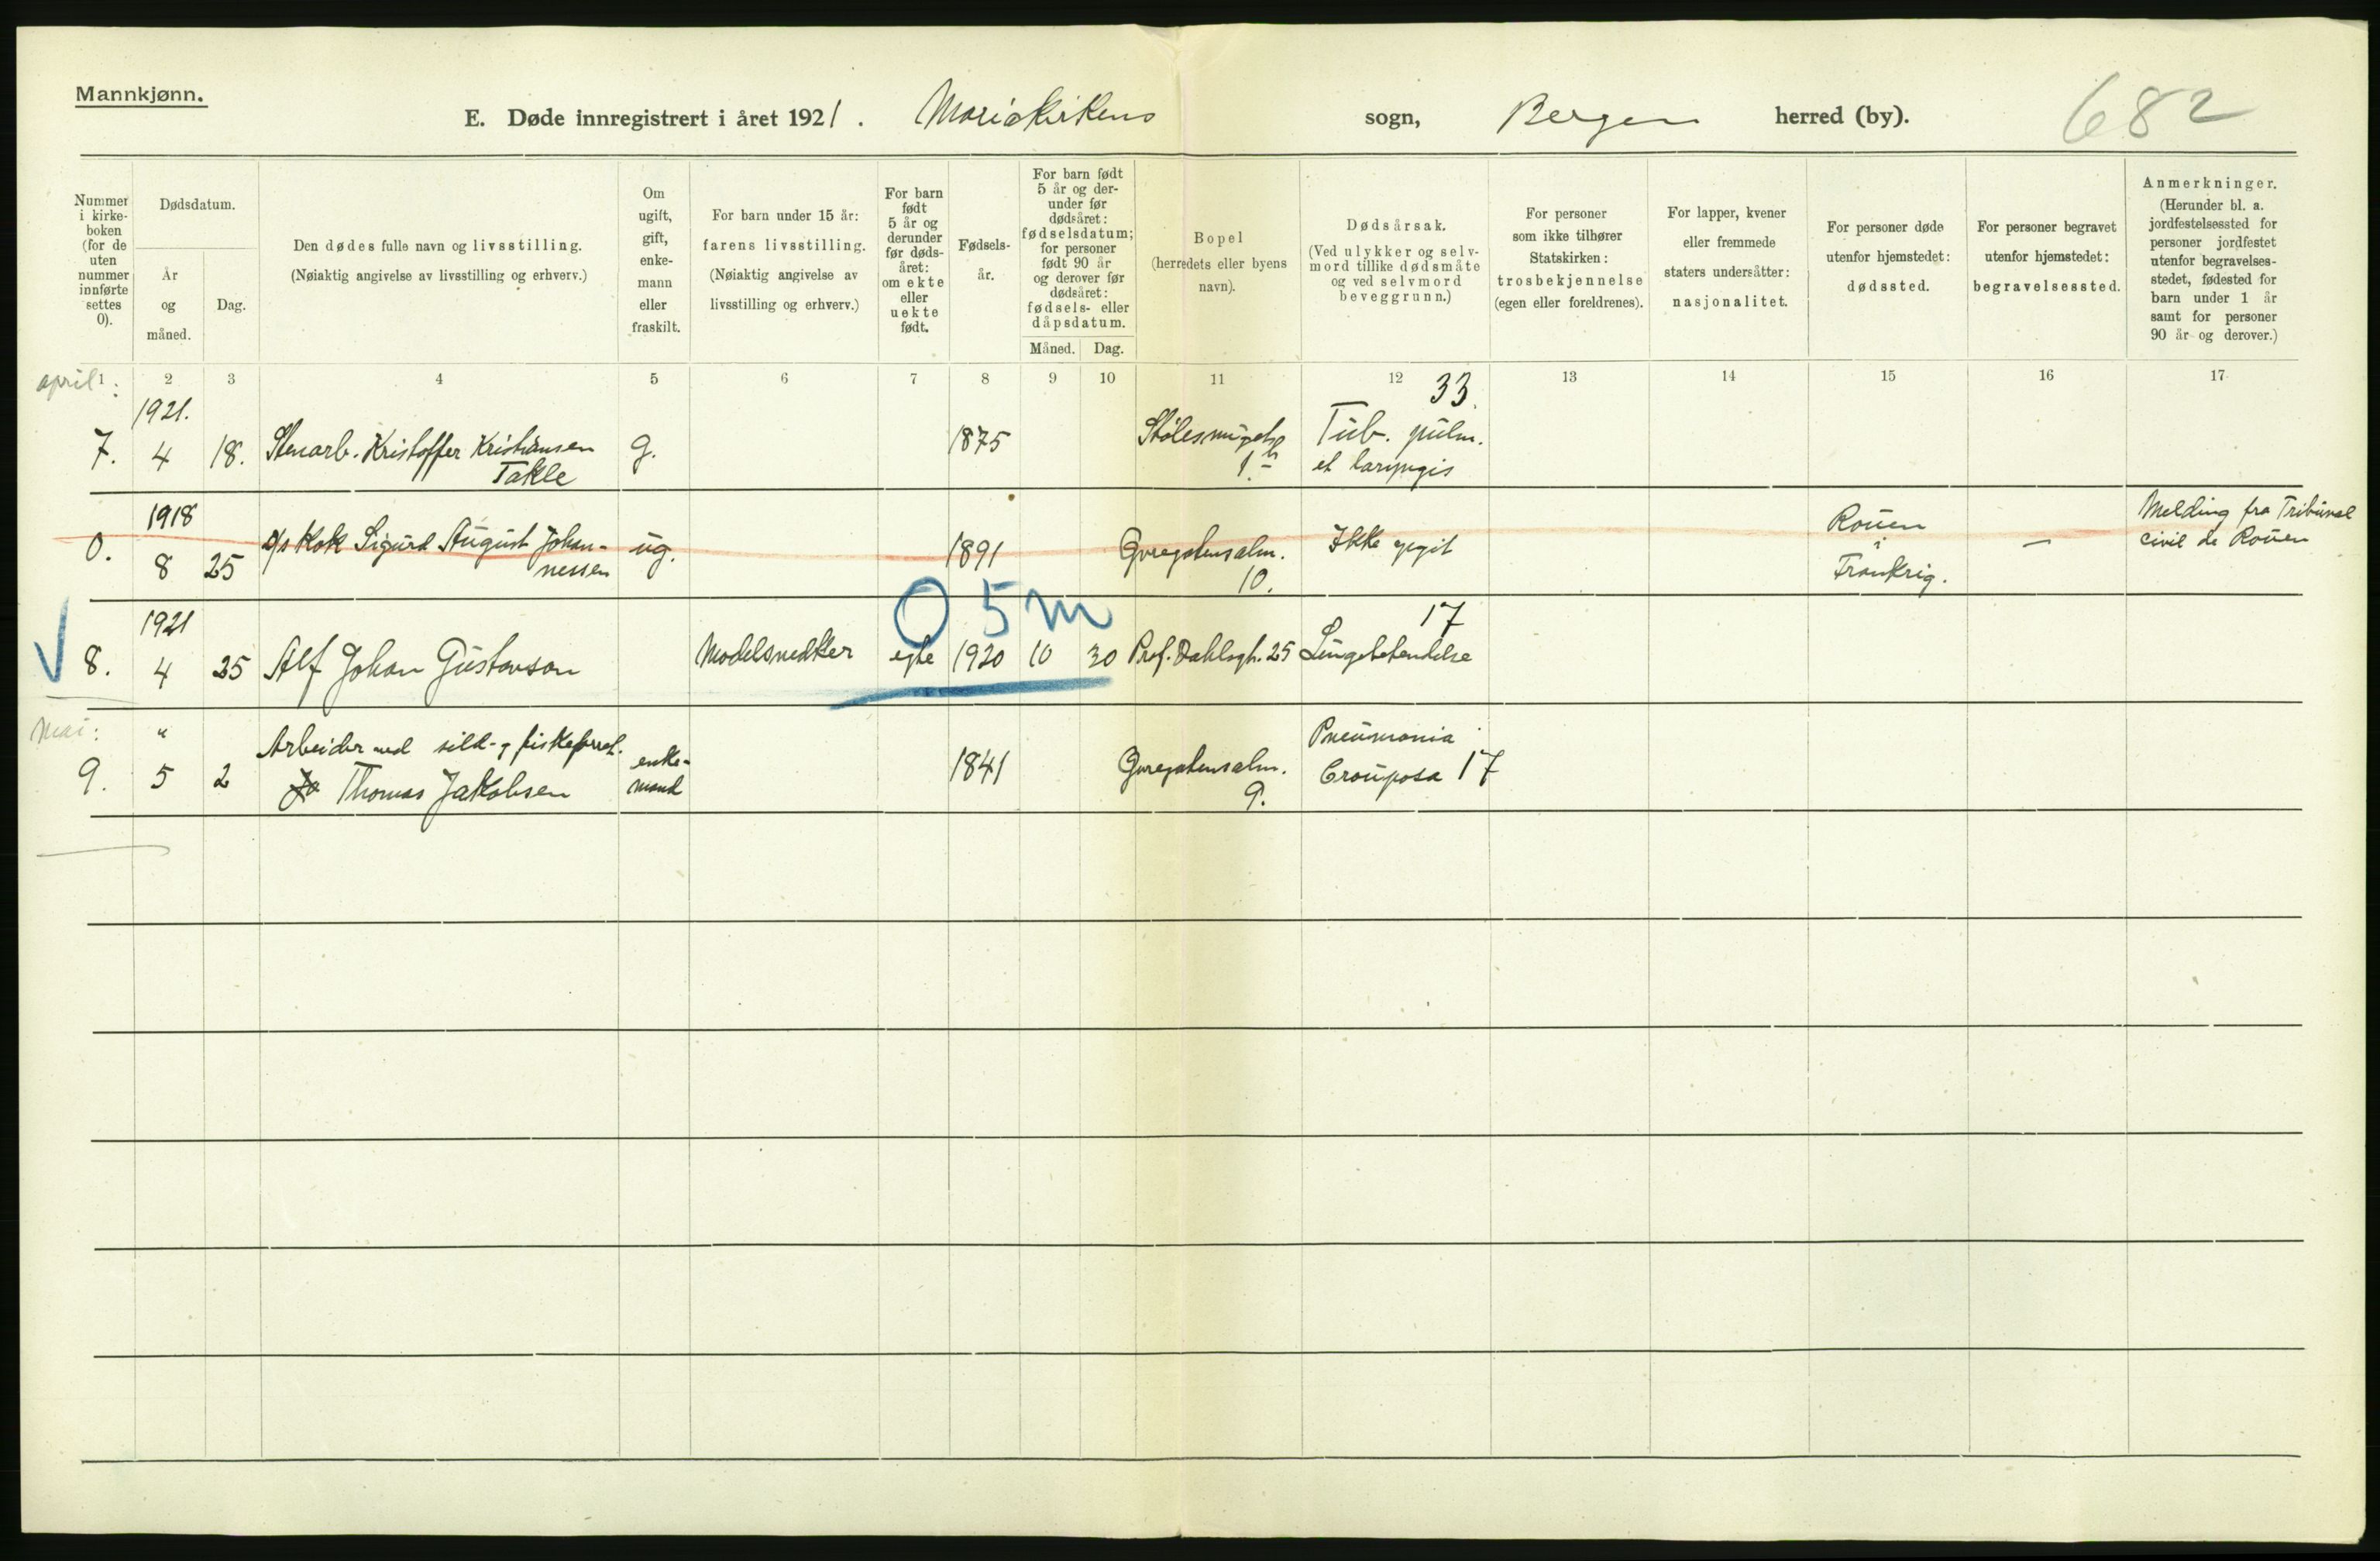 Mannkjønn.
E. Døde innregistrert i året 1921. Mariakirkens sogn, Bergen herred (by). 682
Nummer i kirke-boken (for de uten nummer innførte settes 0).
Dødsdatum.
År og måned.
Dag.
Den dødes fulle navn og livsstilling.
(Nøiaktig angivelse av livsstilling og erhverv.)
Om ugift, gift, enke-mann eller fraskilt.
For barn under 15 år:
farens livsstilling.
(Nøiaktig angivelse av
livsstilling og erhverv.)
For barn født 5 år og derunder før døds-året: om ekte eller uekte født.
Fødsels-år.
For barn født 5 år og der-under før dødsåret: fødselsdatum; for personer født 90 år og derover før dødsåret: fødsels- eller dåpsdatum.
Måned. Dag.
Bopel
(herredets eller byens navn).
Dødsårsak.
(Ved ulykker og selv-mord tillike dødsmåte og ved selvmord beveggrunn.)
For personer som ikke tilhører Statskirken: trosbekjennelse (egen eller foreldrenes).
For lapper, kvener eller fremmede staters undersåtter: nasjonalitet.
For personer døde utenfor hjemstedet: dødssted.
For personer begravet utenfor hjemstedet: begravelsessted.
Anmerkninger.
(Herunder bl. a. jordfestelsessted for personer jordfestet utenfor begravelses-stedet, fødested for barn under 1 år samt for personer 90 år og derover.)
1 2 3 4 5 6 7 8 9 10 11 12 13 14 15 16 17
april:
1921. 33.
7. 4 18. Stenarb. Kristoffer Kristiansen g. 1875 Tub. pulm.
Takle 1 b et laryngis
1918 Rouen Melding fra Tribunal
0. 8 25 d/s Kok Sigurd August Johan- ug. 1891 Ikke opgit i — civil de Rouen
nessen 10. Frankrig.
0 5 m
1921 17
8. 4 25 Alf Johan Gustavson Modelsnedker egte 1920 10 30 Prof. Dahlsgt. 25 Lungebetendelse
Mai:
" Arbeider ved sild- enke- Pneumonia
9. 5 2 Thomas Jakobsen mand 1841 9. Crouposa 17